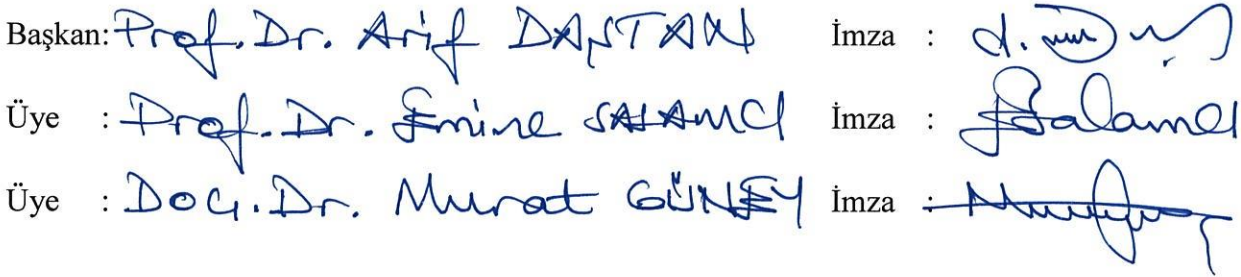 Başkan: Prof. Dr. Arif DAŞTAN İmza :
Üye : Prof. Dr. Emine SALAMCI İmza : ESalamcı
Üye : Doç. Dr. Murat GÜNEY İmza :